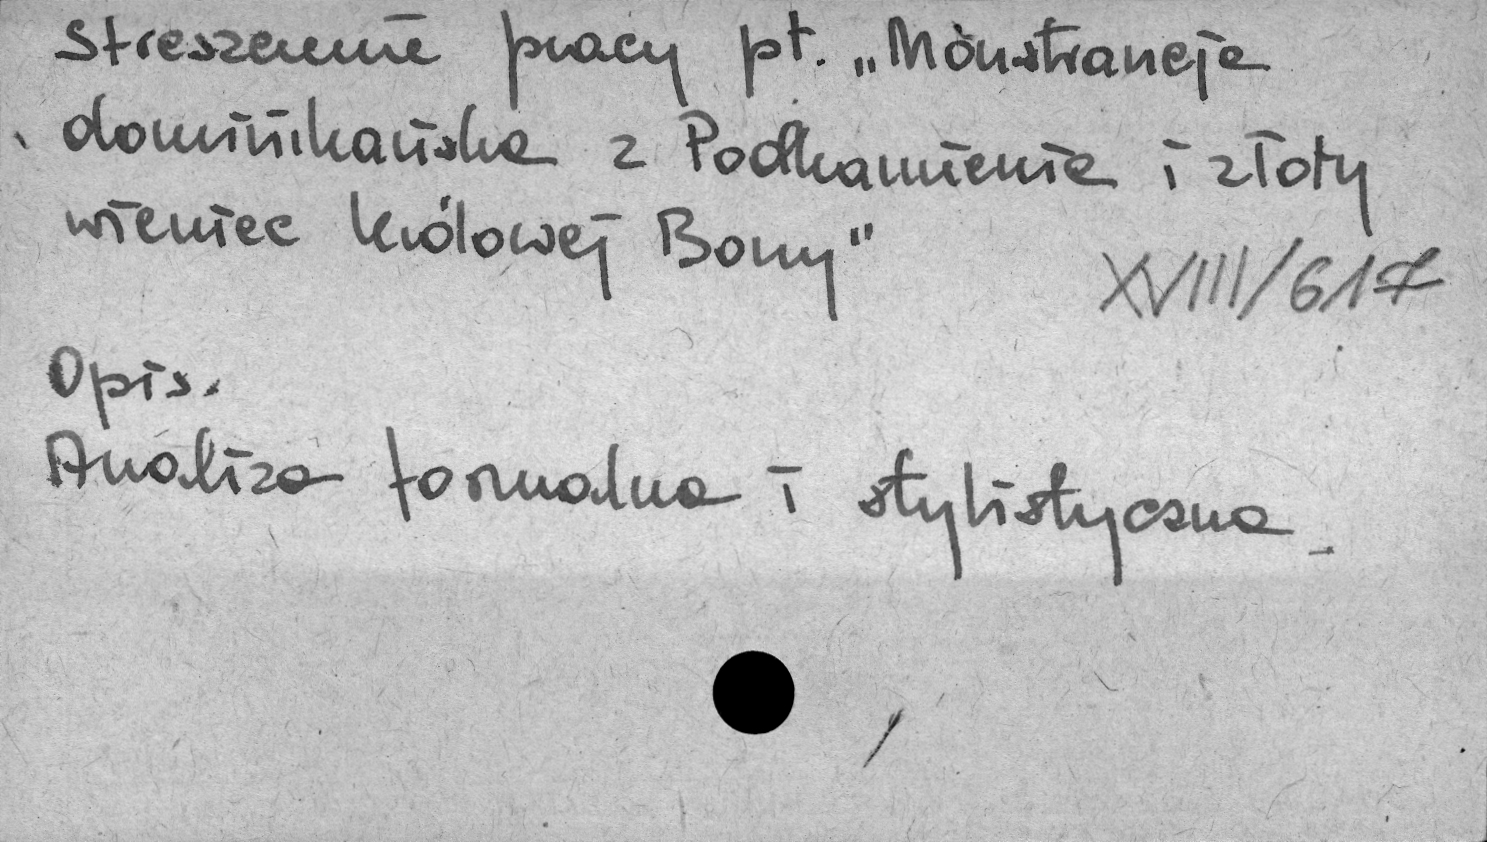 Streszczenie pracy pt. „Monstrancja
dominikańska z Podkamienia i złoty
wieniec królowej Bony"
XVIII/617
Opis.
Analiza formalna i stylistyczna.